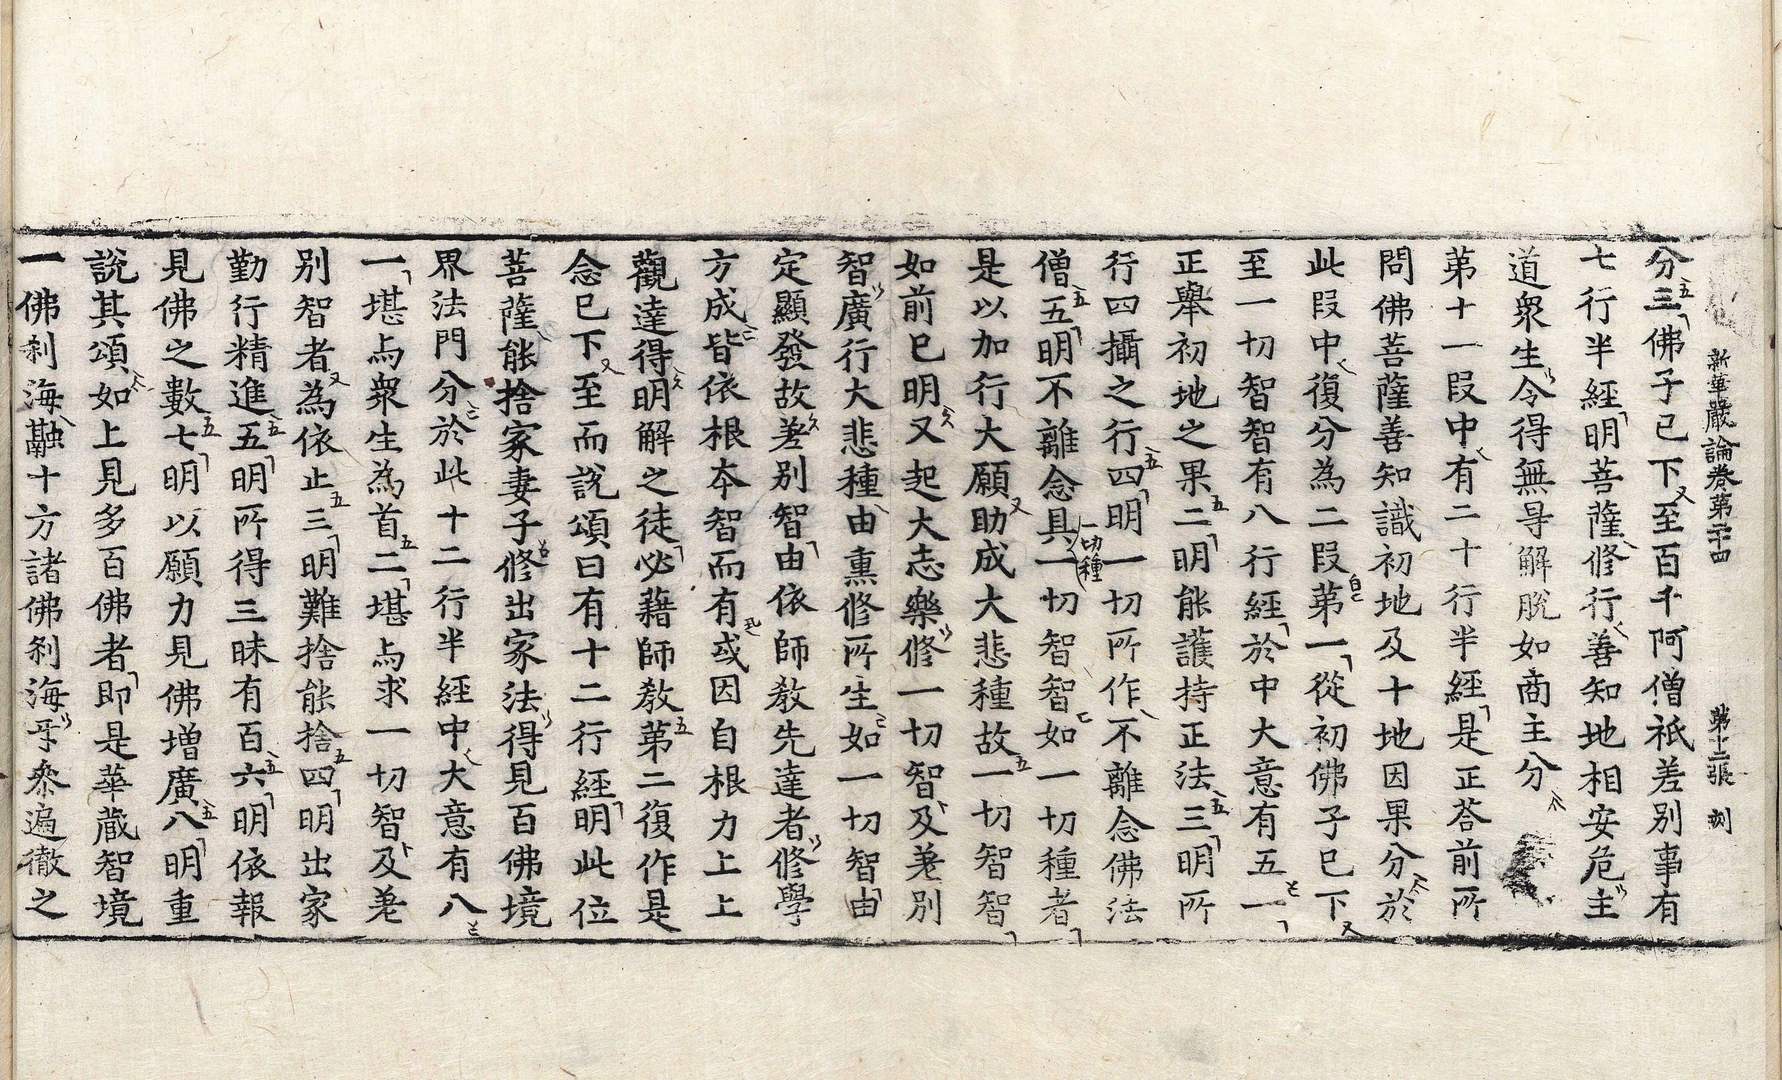 新華嚴論卷第二十四　第十二張　刿
分三佛子已下至百千阿僧祇差别事有
七行半經明菩薩修行善知地相安危主
道衆生令得無㝵解脫如商主分
第十一段中有二十行半經是正荅前所
問佛菩薩善知識初地及十地因果分於
此段中復分為二段第一從初佛子已下
至一切智智有八行經於中大意有五一
正舉初地之果二明能護持正法三明所
行四攝之行四明一切所作不離念佛法
僧五明不離念具一切智智如一切種者
是以加行大願助成大悲種故一切智智
如前已明又起大志樂修一切智及差别
智廣行大悲種由熏修所生如一切智由
定顯發故差别智由依師教先達者修學
方成皆依根本智而有或因自根力上上
觀達得明解之徒必藉師教第二復作是
念已下至而說頌曰有十二行經明此位
菩薩能捨家妻子修出家法得見百佛境
界法門分於此十二行半經中大意有八
一堪与衆生為首二堪与求一切智及差
别智者為依止三明難捨能捨四明出家
勤行精進五明所得三昧有百六明依報
見佛之數七明以願力見佛增廣八明重
說其頌如上見多百佛者即是華藏智境
一佛刹海融十方諸佛刹海㸦叅遍徹之